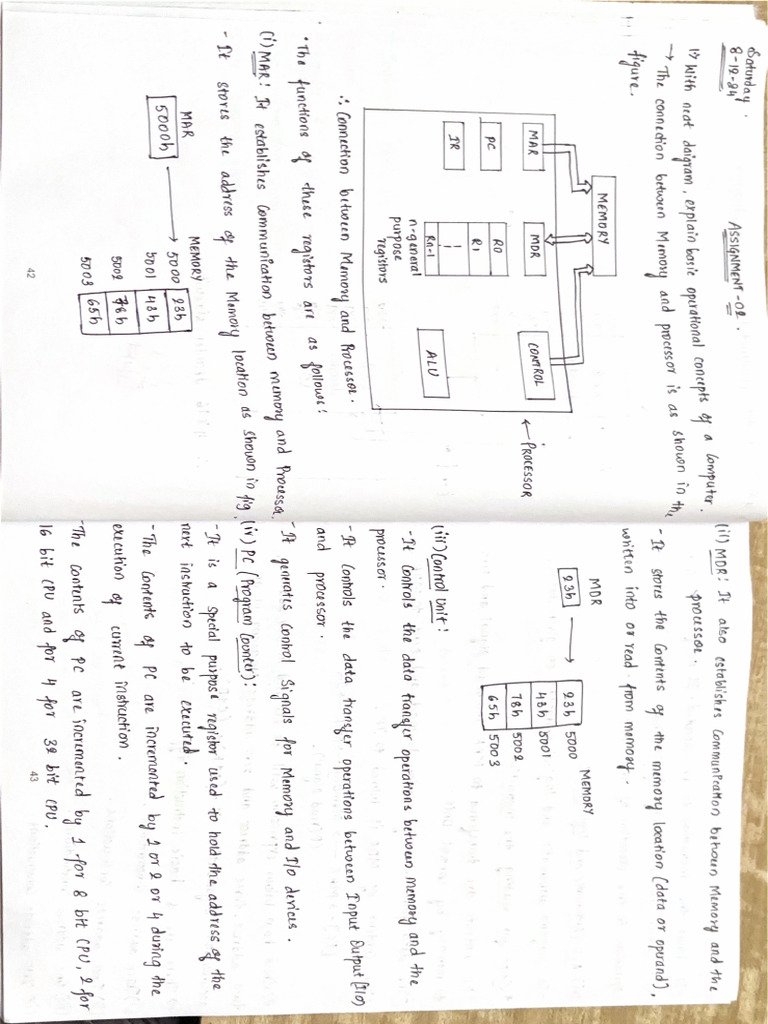 Saturday.
8-12-24
ASSIGNMENT-02.
1) With neat daigram, explain basic operational concepts of a Computer.
→ The connection between Memory and processor is as shown in the
figure.
MEMORY
MAR
MDR
CONTROL
← PROCESSOR
PC
R0
R1
IR
Rn-1
ALU
n-general
purpose
registors
∴ Connection between Memory and Processor.
• The functions of these registors are as follows:
(i) MAR: It establishes Communication between memory and Processor.
- It stores the address of the Memory location as shown in fig.
MAR
MEMORY
5000h
5000 23h
5001 43h
5002 78h
5003 65h
42
(ii) MDR: It also establishes Communication between Memory and the
processor.
- It stores the Contents of the memory location (data or operand),
written into or read from memory.
MDR
MEMORY
23h
23h 5000
43h 5001
78h 5002
65h 5003
(iii) Control Unit:
- It Controls the data transfer operations between memory and the
processor.
- It Controls the data transfer operations between Input Output (I/O)
and processor.
- It generates Control Signals for Memory and I/O devices.
(iv) PC (Program Counter):
- It is a special purpose register used to hold the address of the
next instruction to be executed.
- The Contents of PC are incremented by 1 or 2 or 4 during the
execution of current instruction.
- The contents of PC are incremented by 1 for 8 bit CPU, 2 for
16 bit CPU and for 4 for 32 bit CPU.
43